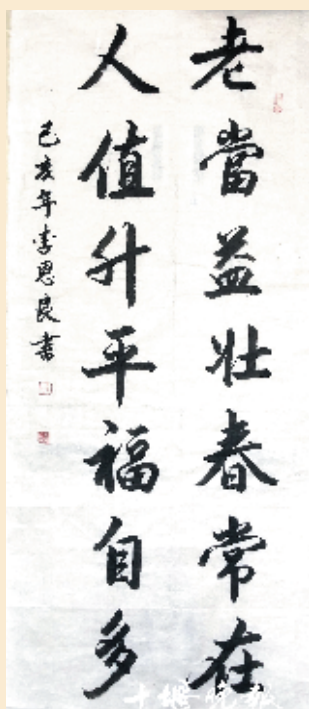 老當益壯春常在
人值升平福自多
己亥年李恩良書
十堰晚报